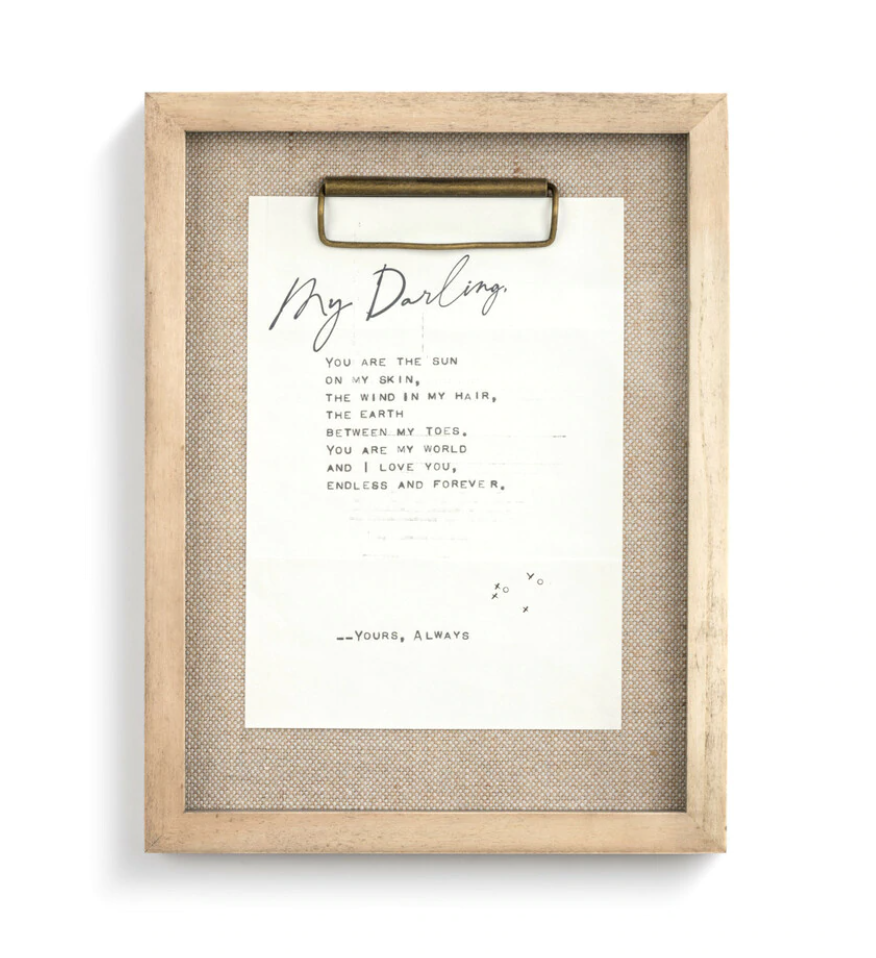 My Darling,
YOU ARE THE SUN
ON MY SKIN,
THE WIND IN MY HAIR,
THE EARTH
BETWEEN MY TOES.
YOU ARE MY WORLD
AND I LOVE YOU,
ENDLESS AND FOREVER.
x o y o
x
x
--YOURS, ALWAYS